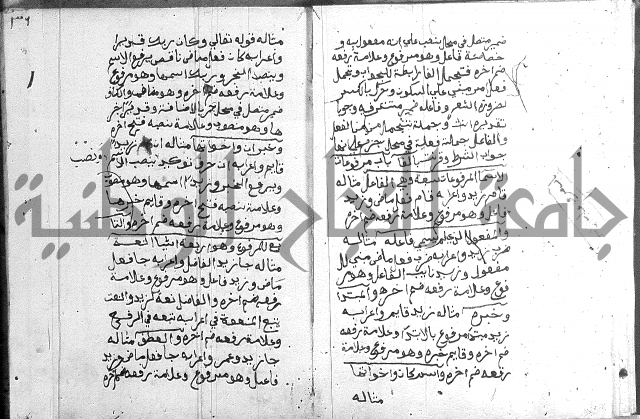 ضمير متصل في محل نصب على انه مفعول به و
فاعل وهو مرفوع وعلامة رفعه
ضم اخره
فعل امر مبني على السكون وحرك بالكسر
لضرورة الشعر وفاعله ضمير مستتر فيه وجوبا
تقديره انت وجملة من الفعل
والفاعل جملة فعلية في محل جزم على
جواب الشرط باب مرفوعات
الاسما المرفوعات سبعة وهي الفاعل مثاله
قام زيد واعرابه قام فعل ماض وزيد
فاعل وهو مرفوع وعلامة رفعه ضم اخره
والمفعول الذي لم يسمى فاعله مثاله
ضرب زيد واعرابه ضرب فعل ماض مبني لل
مفعول وزيد نايب الفاعل وهو مر
فوع وعلامة رفعه ضم اخره والمبتدا
وخبره مثاله زيد قايم واعرابه
زيد مبتدا مرفوع بالابتدا وعلامة رفعه
ضم اخره وقايم خبره وهو مرفوع وعلامة
رفعه ضم اخره واسم كان واخواتها
مثاله
مثاله قوله تعالى وكان ربك قديرا
واعرابه كان فعل ماض ناقص يرفع الاسم
وينصب الخبر وربك اسمها وهو مرفوع
وعلامة رفعه ضم اخره وهو مضاف والكاف
ضمير متصل في محل جر بالاضافة وقديرا خبر
ها وهو منصوب وعلامة نصبه فتح اخره
وخبر ان واخواتها مثاله ان زيدا
قايم واعرابه ان حرف توكيد ونصب ينصب الاسم
ويرفع الخبر وزيدا اسمها وهو منصوب
وعلامة نصبه فتح اخره وقايم خبرها
وهو مرفوع وعلامة رفعه ضم اخره والتا
بع للمرفوع وهو اربعة اشيا النعت
مثاله جا زيد الفاضل واعرابه جا فعل
ماض وزيد فاعل وهو مرفوع وعلامة
رفعه ضم اخره والفاضل نعت لزيد والنعت
يتبع المنعوت في اعرابه تبعه في الرفع
وعلامة رفعه ضم اخره والعطف مثاله
جا زيد وعمر واعرابه جا فعل ماض وزيد
فاعل وهو مرفوع وعلامة رفعه ضم اخره
جامعة النجاح الوطنية